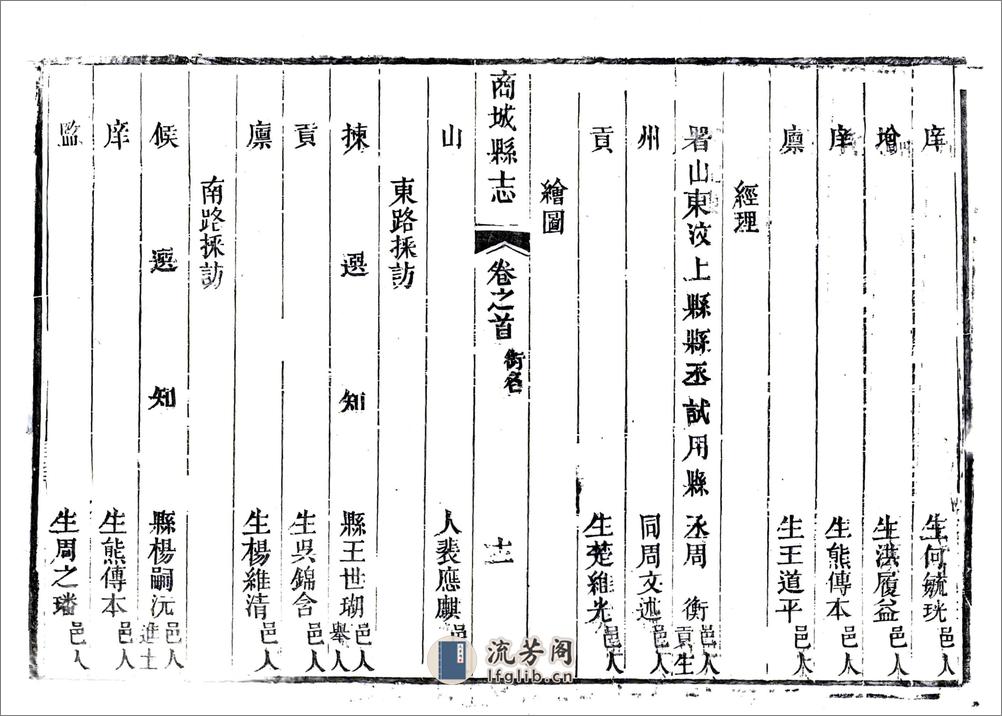 庠生何毓珖邑人
增生洪履益邑人
庠生熊傳本邑人
廪生王道平邑人
經理
署山東汶上縣縣丞試用縣丞周衡邑人貢生
州同周文述邑人
貢生楚維光邑人
繪圖
商城縣志 卷之首 銜名 十二
山人裴應麒邑
東路採訪
揀選知縣王世瑚邑人舉人
貢生吳錦含邑人
廪生楊維清邑人
南路採訪
候選知縣楊嗣沅邑人進士
庠生熊傳本邑人
監生周之璠邑人
流芳阁
lfglib.cn